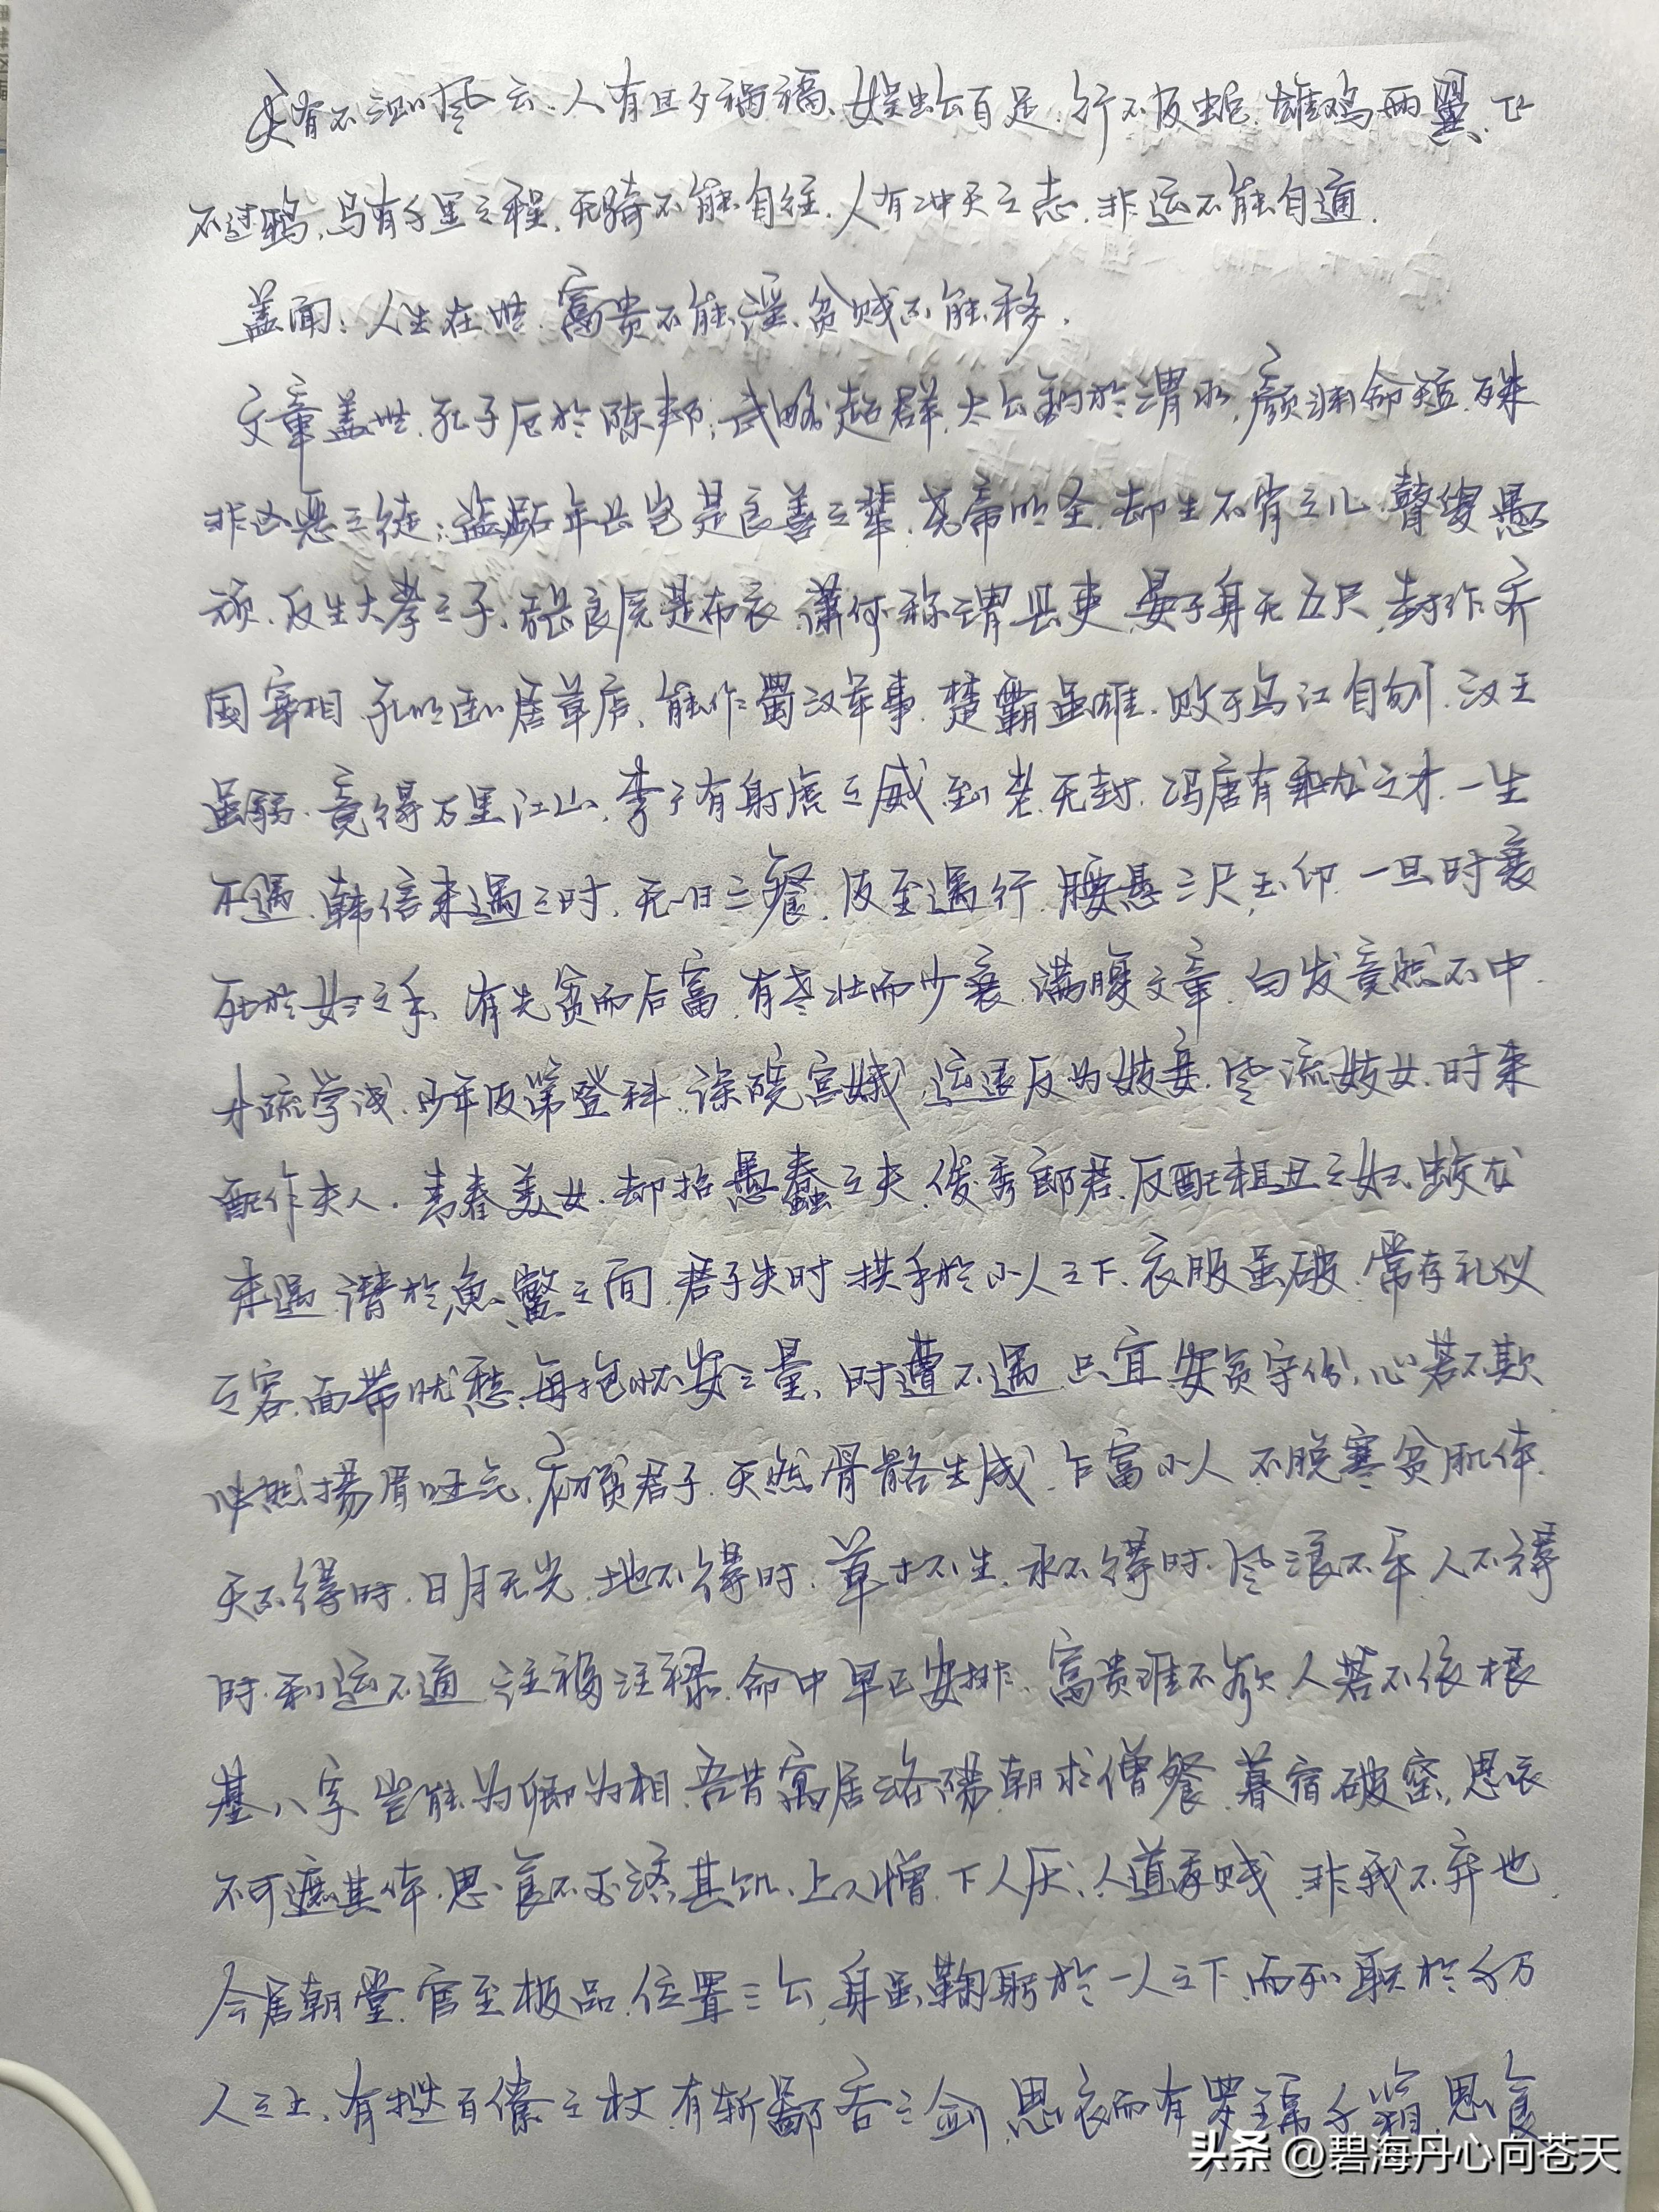 天有不测风云、人有旦夕祸福、蜈蚣百足、行不及蛇、雄鸡两翼、飞
不过鸦、马有千里之程、无骑不能自往、人有冲天之志、非运不能自通.
盖闻：人生在世、富贵不能淫、贫贱不能移.
文章盖世、孔子厄於陈邦；武略超群、太公钓於渭水、颜渊命短、殊
非凶恶之徒；盗跖年长岂是良善之辈、尧帝明圣、却生不肖之儿、瞽叟愚
顽、反生大孝之子、张良原是布衣、萧何称谓县吏、晏子身无五尺、封作齐
国宰相、孔明卧居草庐、能作蜀汉军事、楚霸虽雄、败于乌江自刎、汉王
虽弱、竟得万里江山、李广有射虎之威、到老无封、冯唐有乘龙之才、一生
不遇、韩信未遇之时、无一日三餐、及至遇行、腰悬三尺玉印、一旦时衰
死於妇之手、有先贫而后富、有老壮而少衰、满腹文章、白发竟然不中.
才疏学浅、少年及第登科、深院宫娥、运退反为妓妾、风流妓女、时来
配作夫人、青春美女、却招愚蠢之夫、俊秀郎君、反配粗丑之妇、蛟龙
未遇、潜於鱼鳖之间、君子失时、拱手於小人之下、衣服虽破、常存礼仪
之容、面带忧愁、每抱怀安之量、时遭不遇、只宜安贫守份、心若不欺
必然扬眉吐气、初贫君子、天然骨骼生成、乍富小人、不脱寒贫肌体.
天不得时、日月无光、地不得时、草木不生、水不得时、风浪不平、人不得
时、利运不通、注福注禄、命中早已安排、富贵谁不欲、人若不依根
基八字、岂能为卿为相、吾昔寓居洛阳、朝求僧餐、暮宿破窑、思衣
不可遮其体、思食不可济其饥、上人憎、下人厌、人道我贱、非我不弃也.
今居朝堂、官至极品、位置三公、身虽鞠躬於一人之下、而列职於千万
人之上、有挞百僚之杖、有斩鄙吝之剑、思衣而有罗锦千箱、思食
头条 @碧海丹心向苍天